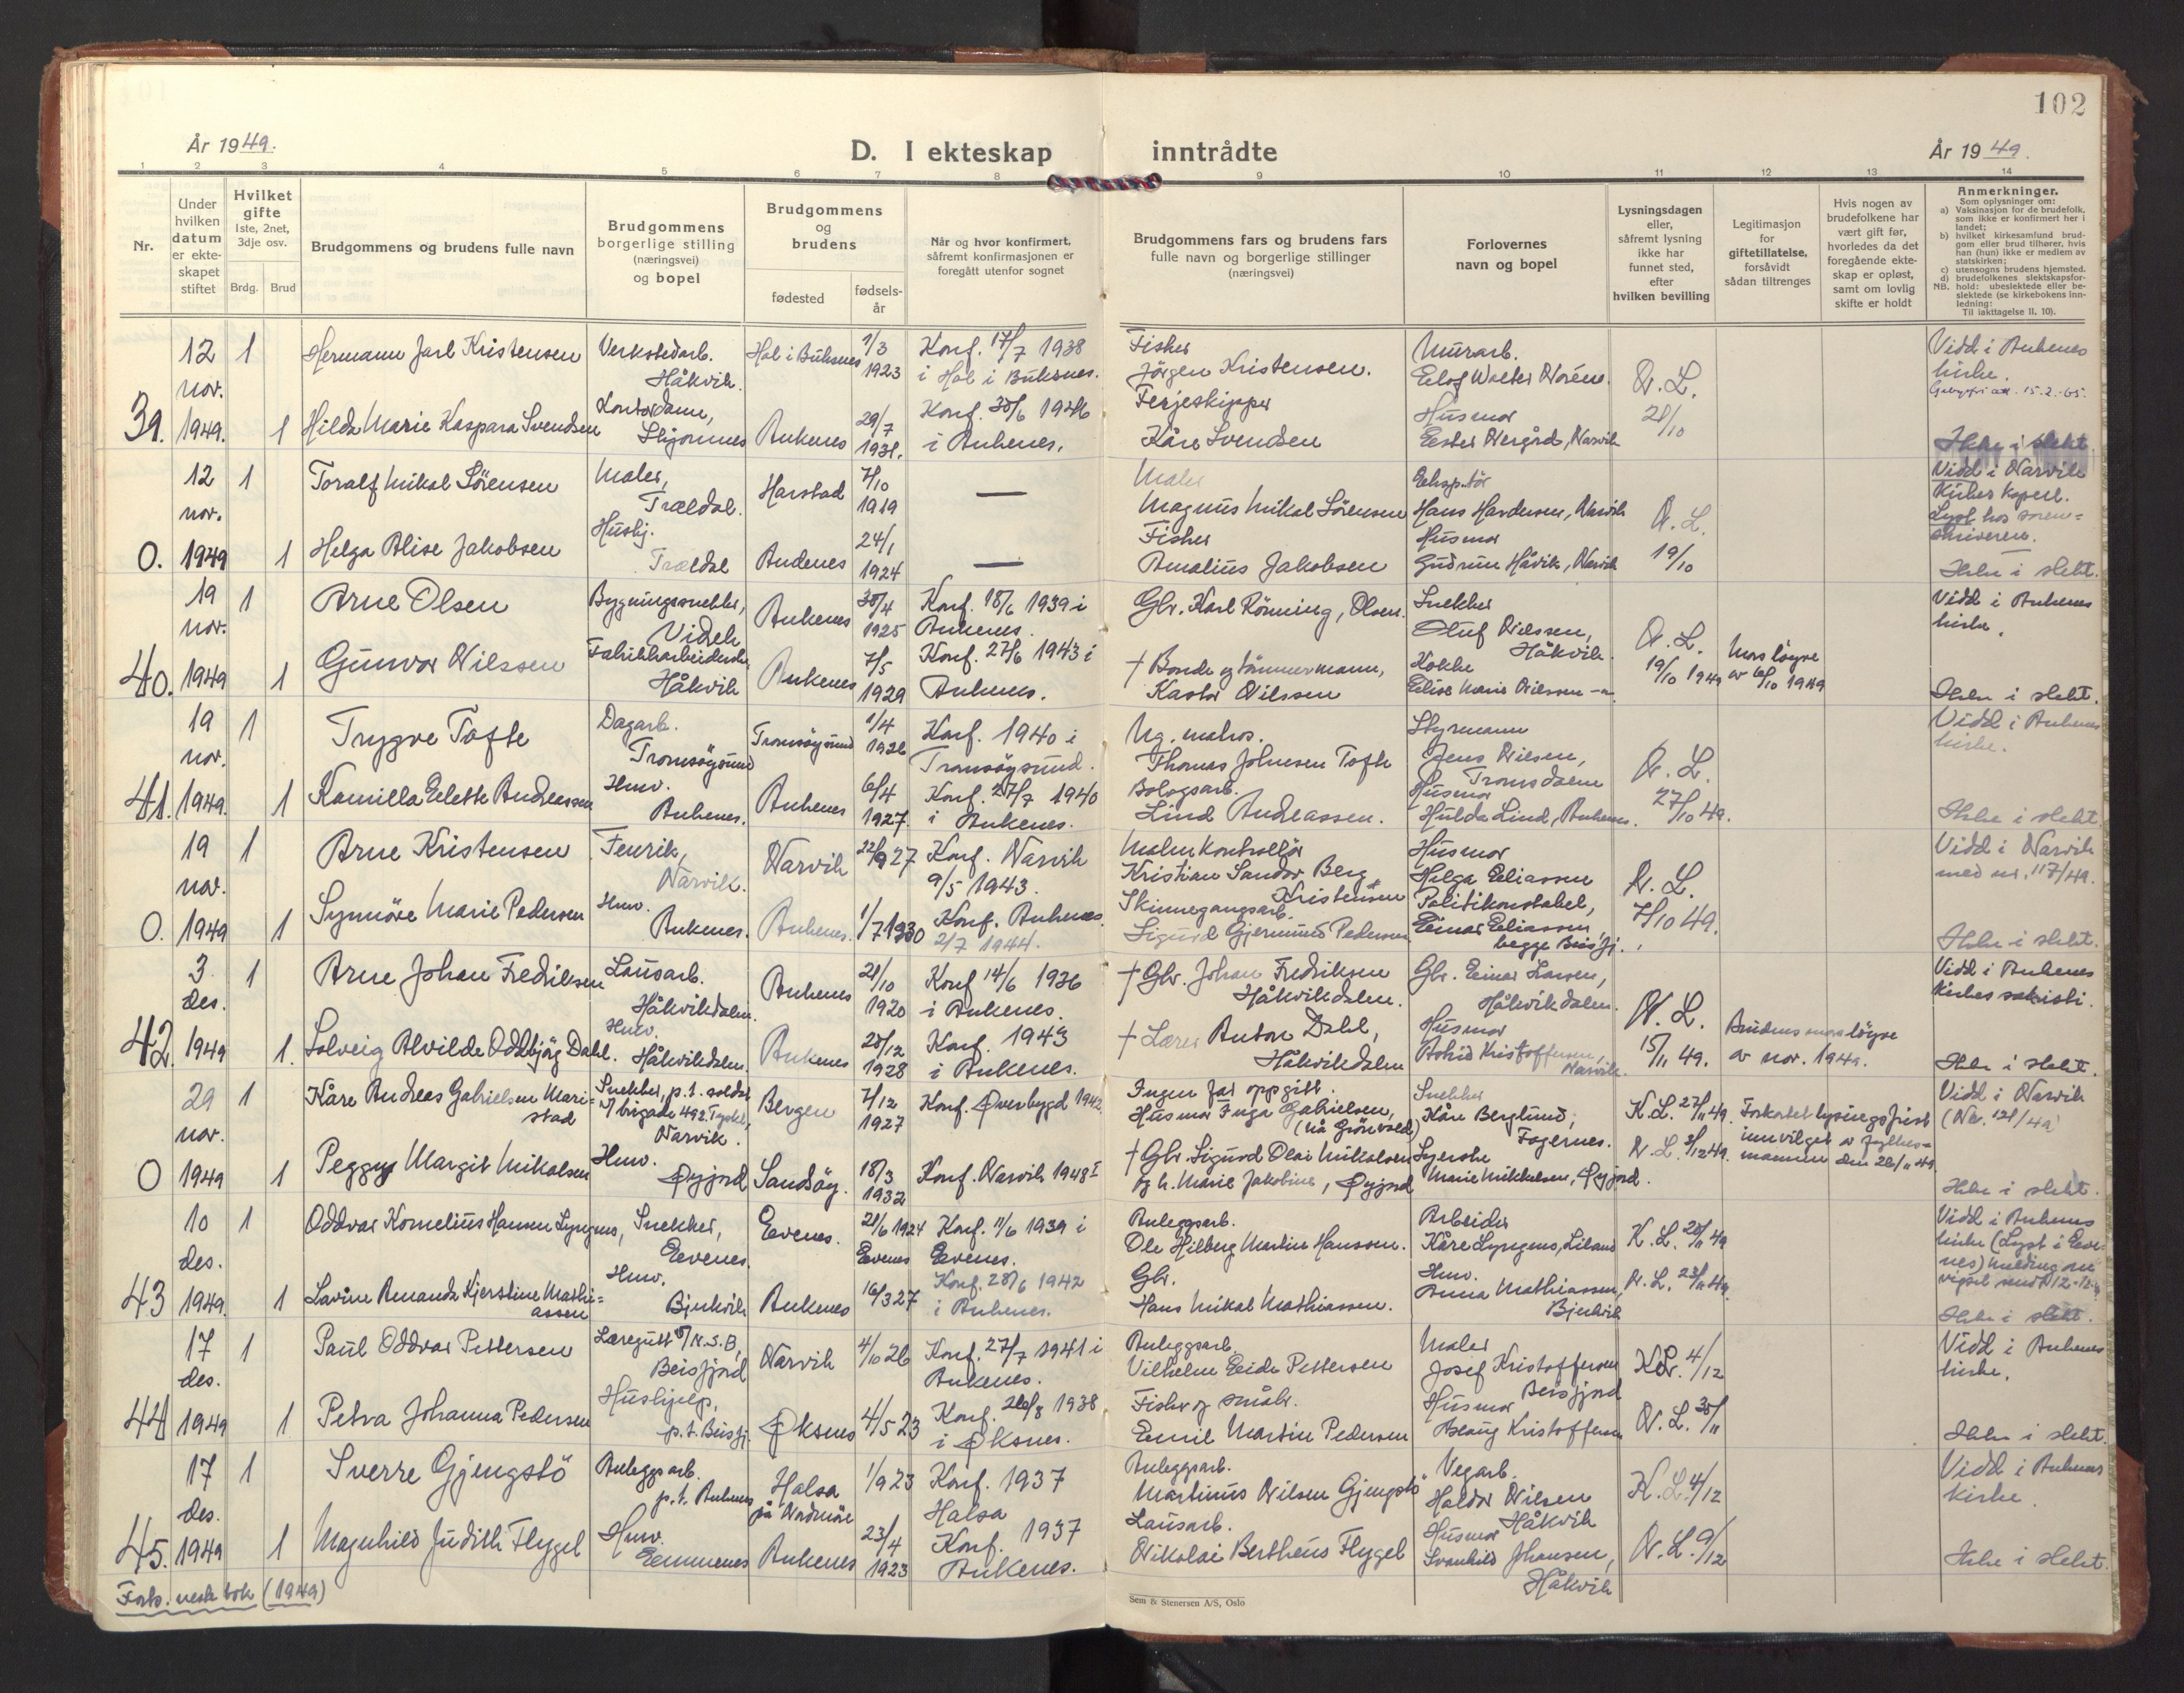 102
År 1949.
D. I ekteskap
inntrådte
År 1949.
1 2 3 4 5 6 7 8 9 10 11 12 13 14
Nr.
Under hvilken datum er ekteskapet stiftet
Hvilket gifte
1ste, 2net, 3dje osv.
Brdg. Brud
Brudgommens og brudens fulle navn
Brudgommens borgerlige stilling (næringsvei) og bopel
Brudgommens og brudens
fødested
fødselsår
Når og hvor konfirmert, såfremt konfirmasjonen er foregått utenfor sognet
Brudgommens fars og brudens fars fulle navn og borgerlige stillinger (næringsvei)
Forlovernes navn og bopel
Lysningsdagen eller, såfremt lysning ikke har funnet sted, efter hvilken bevilling
Legitimasjon for giftetillatelse, forsåvidt sådan tiltrenges
Hvis nogen av brudefolkene har vært gift før, hvorledes da det foregående ekteskap er opløst, samt om lovlig skifte er holdt
Anmerkninger.
Som oplysninger om:
a) Vaksinasjon for de brudefolk, som ikke er konfirmert her i landet;
b) hvilket kirkesamfund brudgom eller brud tilhører, hvis han (hun) ikke er medlem av statskirken;
c) utensogns brudens hjemsted.
d) brudefolkenes slektskapsforhold: ubeslektede eller beslektede (se kirkebokens innledning:
NB.
Til iakttagelse II, 10).
12 nov. 1 Hermann Jarl Kristensen Verkstedarb. Håkvik. Hol i Buksnes 1/3 1923 Konf. 17/7 1938 i Hol i Buksnes. Fisker Jörgen Kristensen. Murarb. Eilof Walter Norén. N. L. 21/10 Vidd i Ankenes kirke. 15.2.-65.
39. 1949. 1 Hilda Marie Kaspara Svendsen Kontordame, Skjomnes Ankenes 29/7 1931. Konf. 30/6 1946 i Ankenes. Ferjeskipper Kåre Svendsen Husmor Ester Nergård, Narvik Ikke i slekt
12 nov. 1 Toralf Mikal Sörensen Maler, Trældal. Harstad 7/10 1919 — Maler Magnus Mikal Sörensen Eksp.tör Hans Hardersen, Narvik N. L. 19/10 Vidd i Narvik kirkes kapell. Lyst hos sorenskriveren.
0. 1949 1 Helga Alise Jakobsen Hushj. Trældal Andenes 24/1 1924 — Fisker Amalius Jakobsen Husmor Gudrun Håvik, Narvik Ikke i slekt.
19 nov. 1 Arne Olsen Bygningssnekker, Videk Ankenes 30/4 1925 Konf. 18/6 1939 i Ankenes. Gbr. Karl Rönning, Olsen. Snekker Oluf Nilssen, Håkvik. N. L. 19/10 1949 Vidd i Ankenes kirke.
40. 1949 1 Gunvor Nilssen Fabrikkarbeiderske Håkvik Ankenes 7/5 1929 Konf. 27/6 1943 i Ankenes. † Bonde og tömmermann, Kastor Nilssen Kokke Elise Marie Nilssen Mors löyve av 16/10 1949 Ikke i slekt.
19 nov. 1 Trygve Tofte Dagarb. Tromsöysund Tromsöysund 1/4 1926 Konf. 1940 i Tromsöysund. Ug. matros. Thomas Johnsen Tofte Styrmann Jens Nilsen, Tromsdalen N. L. 27/10 49. Vidd i Ankenes kirke.
41. 1949. 1 Kamilla Elette Andreassen Hmv. Ankenes. Ankenes 6/4 1927. Konf. 27/7 1940 i Ankenes. Bologsarb. Lind Andreassen. Husmor Hulda Lind, Ankenes. Ikke i slekt.
19 nov. 1 Arne Kristensen Fenrik, Narvik. Narvik 22/9 27 Konf. Narvik 9/5 1943. Malmkontrollör Kristian Sandor Berg Kristensen Husmor Helga Eliassen N. L. 7/10 49. Vidd i Narvik med nr. 117/49.
0. 1949 1 Synnöve Marie Pedersen Hmv. Ankenes. Ankenes. 1/7 1930 Konf. Ankenes 2/7 1944. Skinnegangsarb. Sigurd Gjermund Pedersen Politikonstabel, Einar Eliassen, begge Beisfj. Ikke i slekt.
3. des. 1 Arne Johan Fredriksen Lausarb. Håkvikdalen. Ankenes 21/10 1920 Konf 14/6 1936 i Ankenes. † Gbr. Johan Fredriksen Håkvikdalen. Gbr. Einar Larsen, Håkvikdalen. N. L. 15/11 49. Vidd i Ankenes kirkes sakristi.
42. 1949 1. Solveig Alvilde Oddbjörg Dahl. Hmv. Håkvikdalen. Ankenes 28/12 1928 Konf. 1943 i Ankenes. † Lærer Anton Dahl, Håkvikdalen Husmor Astrid Kristoffersen, Narvik. Brudens mors löyve av nov. 1949. Ikke i slekt.
29 nov. 1 Kåre Andreas Gabrielsen Maristad Snekker, p.t. soldat v/ brigade 492 Tyskl., Narvik. Bergen 7/12 1927 Konf. Øverbygd 1942. Ingen far oppgitt. Husmor Inga Gabrielsen, (nå Grönvold) Snekker Kåre Berglund, Fagernes. K. L. 27/11 49. N. L. 3/12 49. Forkortet lysingsfrist innvilget av fylkesmannen den 26/11 49. Vidd i Narvik (Nr. 121/49)
0 1949 1 Peggy Margit Mikalsen Hmv. Øyjord Sandsöy. 18/3 1932 Konf. Narvik 1948 † Gbr. Sigurd Olai Mikalsen og h. Marie Jakobine, Øyjord Syerske Marie Mikkelsen, Øyjord. Ikke i slekt.
10 des. 1 Oddvar Kornelius Hansen Lyngmo, Snekker, Evenes. Evenes. 21/6 1924 Evenes Konf. 11/6 1939 i Evenes. Anleggsarb. Ole Hilberg Martin Hanssen. Arbeider Kåre Lyngmo, Liland K. L. 20/11 49 Vidd i Ankenes kirke (Lyst i Evenes) Melding om vigsel sendt 12-12-49
43 1949. 1 Lavine Amanda Kjerstine Mathiassen Hmv. Bjerkvik Ankenes 16/3 27 Konf. 28/6 1942 i Ankenes. Gbr. Hans Mikal Mathiassen. Hmv. Anna Mathiassen, Bjerkvik N. L. 23/11 49. Ikke i slekt.
17 des. 1 Paul Oddvar Pettersen Læregutt v/ N.S.B, Beisfjord Narvik 4/10 26 Konf. 27/7 1941 i Ankenes. Anleggsarb. Vilhelm Eide Pettersen Maler Josef Kristoffersen Beisfjord K. L. 4/12 Vidd i Ankenes kirke.
44 1949 1 Petra Johanna Pedersen Hushjelp, p.t. Beisfj. Øksnes 4/5 23 Konf. 1938 i Øksnes. Fisker og småbr. Emil Martin Pedersen Husmor Aslaug Kristoffersen N. L. 30/11 Ikke i slekt.
17 des. 1 Sverre Gjengstö Anleggsarb. p.t. Ankenes Halsa på Nordmöre 1/9 23 Konf. 1937 Halsa Anleggsarb. Martinus Nilsen Gjengstö Vegarb. Haldor Nilsen Håkvik K. L. 4/12 Vidd i Ankenes kirke.
45. 1949 1 Magnhild Judith Flygel Hmv. Emmenes Ankenes 23/4 1923 Konf. 1937 Ankenes. Lausarb. Nikolai Bertheus Flygel Husmor Svanhild Johansen, Håkvik N. L. 9/12 Ikke i slekt.
Forts. neste bok (1949)
Sem & Stenersen A/S, Oslo